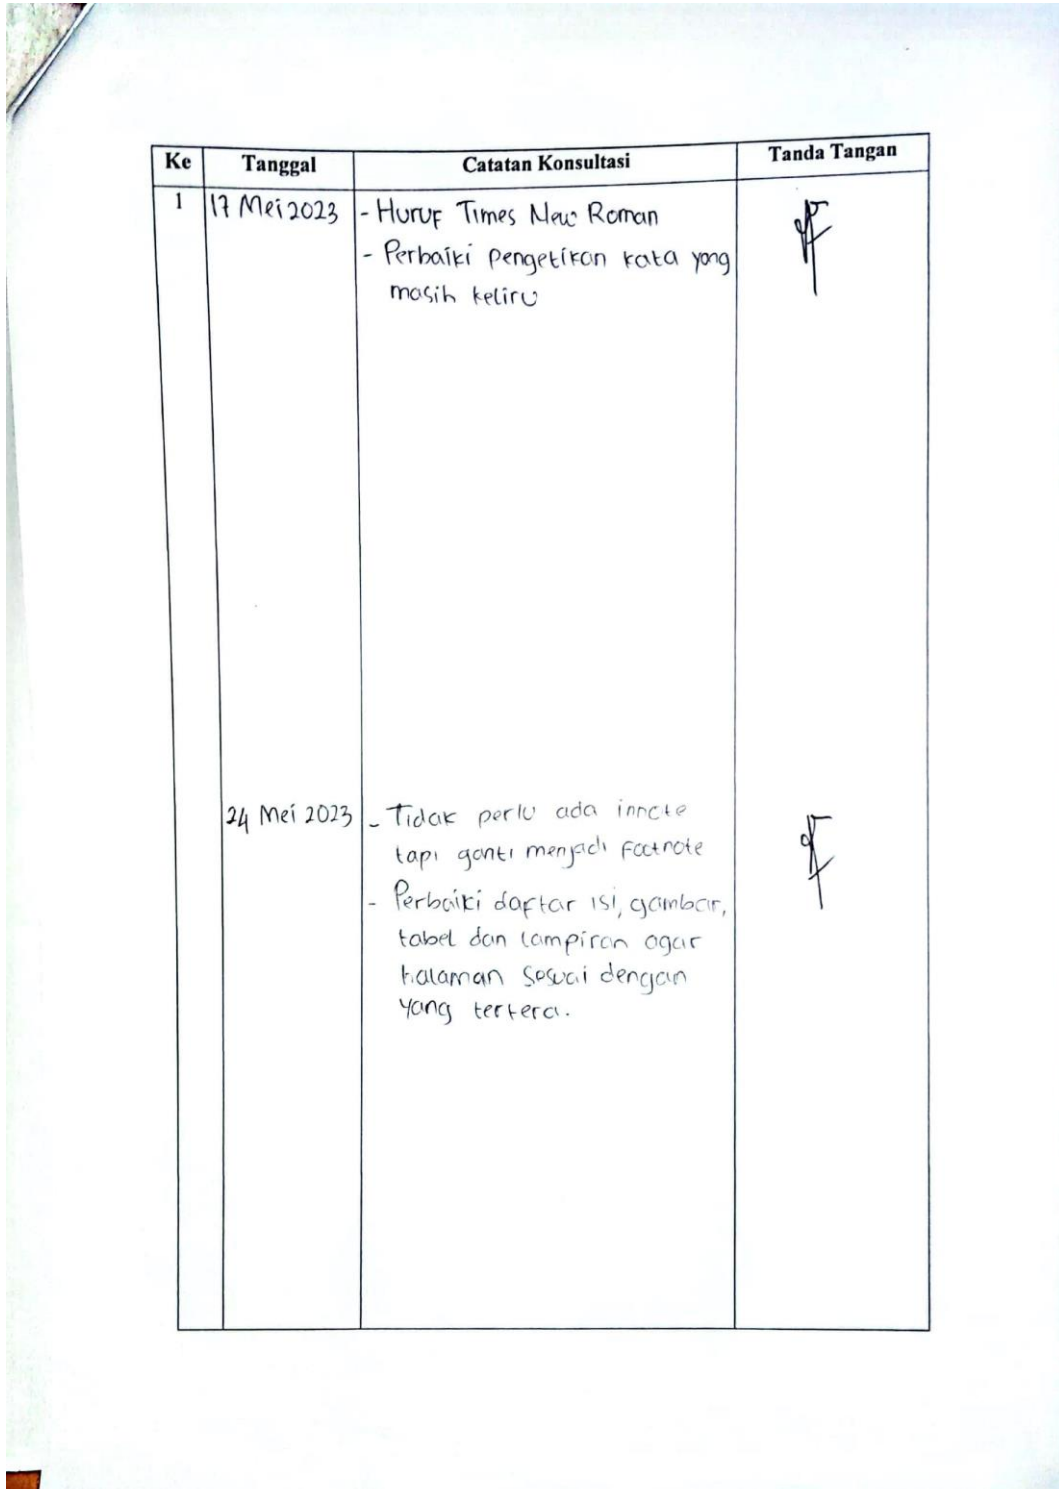 Ke Tanggal Catatan Konsultasi Tanda Tangan
1 17 Mei 2023 - Huruf Times New Roman
- Perbaiki pengetikan kata yang
masih keliru
24 Mei 2023 - Tidak perlu ada innote
tapi ganti menjadi footnote
- Perbaiki daftar isi, gambar,
tabel dan lampiran agar
halaman sesuai dengan
yang tertera.